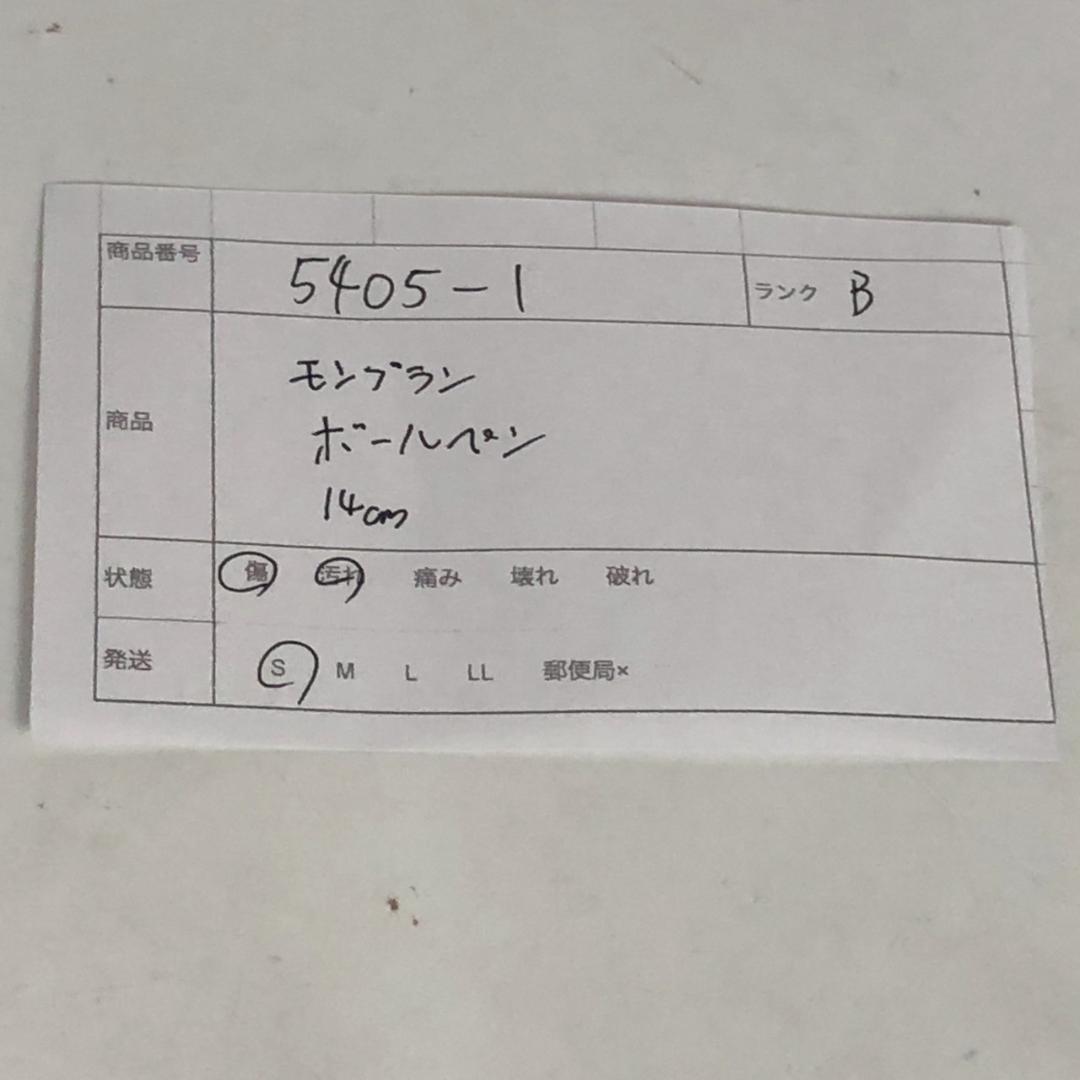 商品番号 5405-1 ランク B
商品
モンブラン
ボールペン
14cm
状態 傷 汚れ 痛み 壊れ 破れ
発送 S M L LL 郵便局×